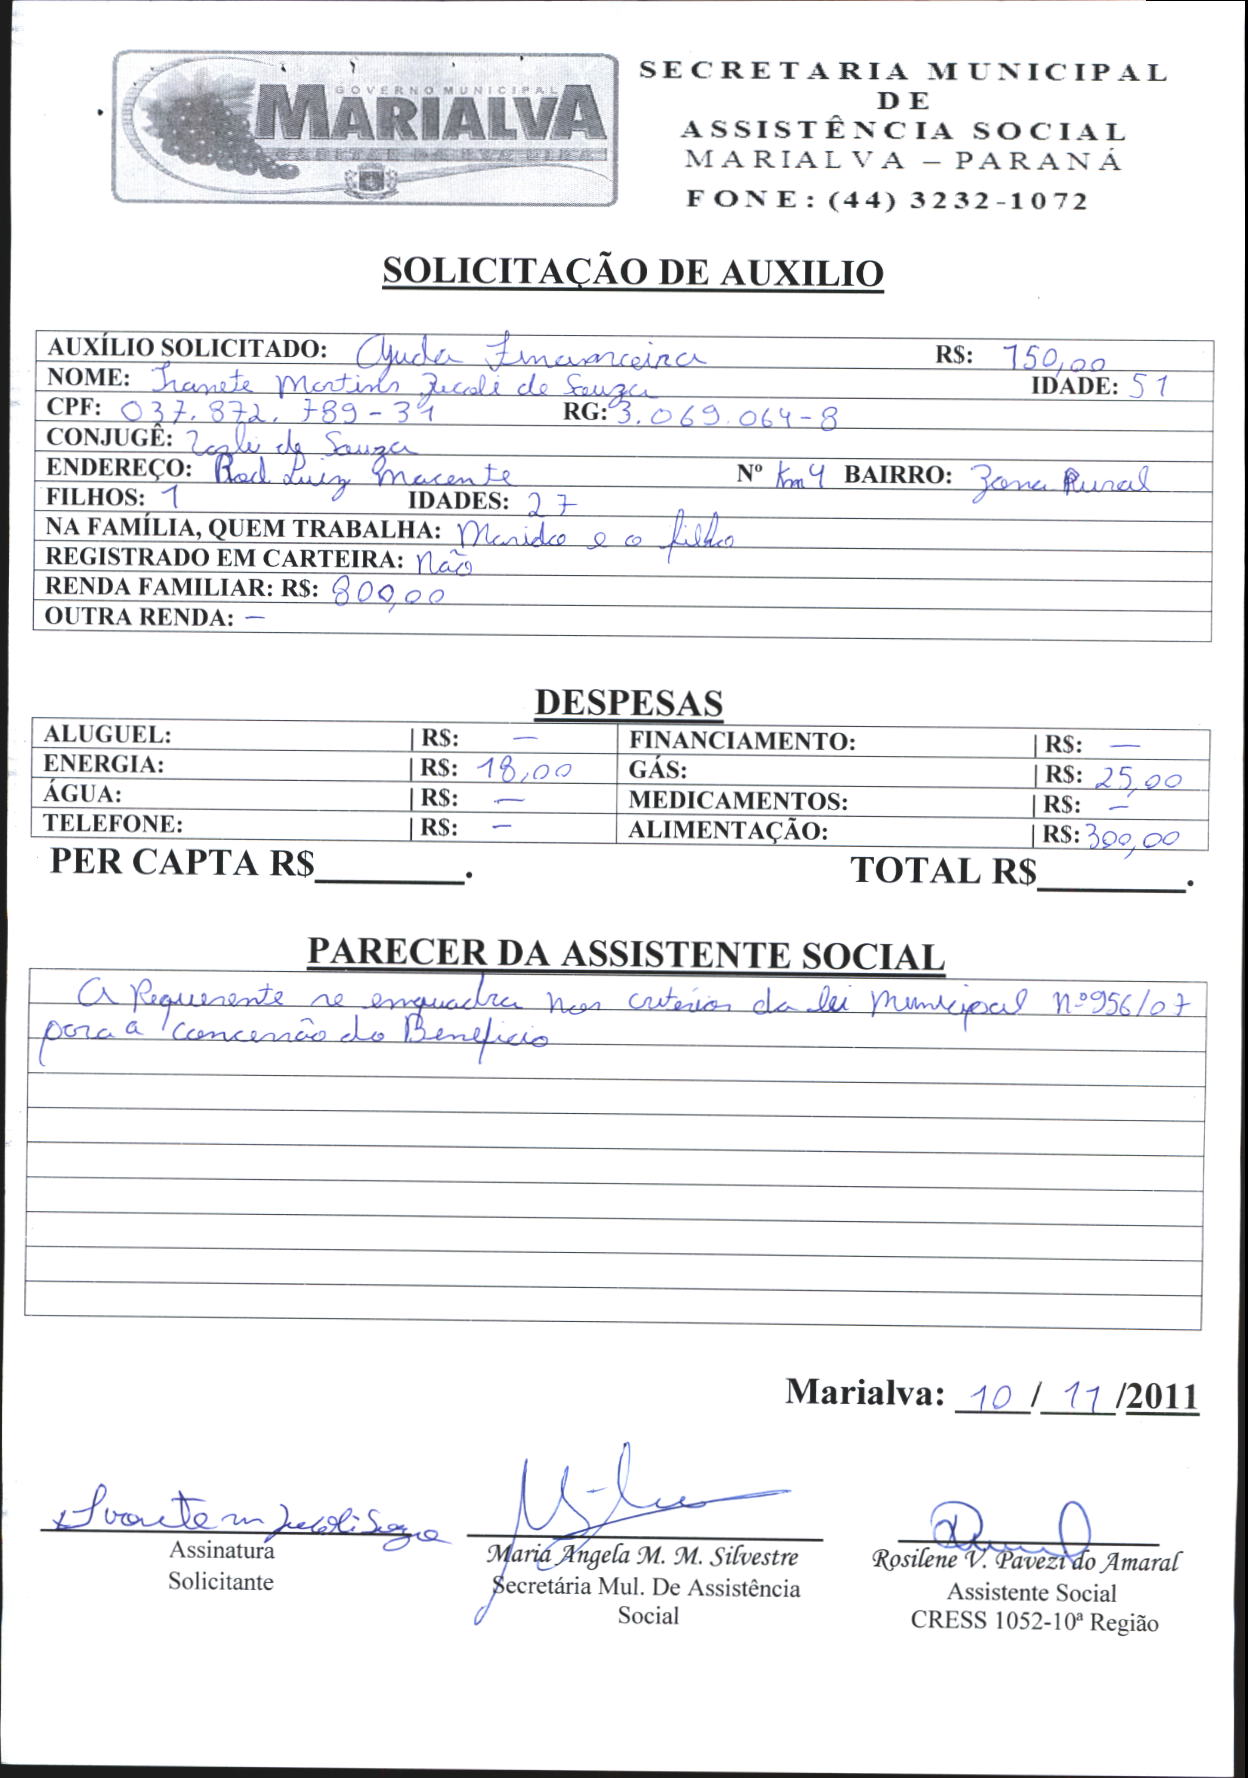 GOVERNO MUNICIPAL
MARIALVA
CAPITAL DA UVA FINA
SECRETARIA MUNICIPAL
DE
ASSISTÊNCIA SOCIAL
MARIALVA – PARANÁ
FONE: (44) 3232-1072
SOLICITAÇÃO DE AUXILIO
AUXÍLIO SOLICITADO: Ajuda Financeira R$: 150,00
NOME: Martins de Souza IDADE: 51
CPF: 037.872.789-31 RG: 3.069.064-8
CONJUGÊ: de Souza
ENDEREÇO: Rod Luiz Macente Nº Km 4 BAIRRO: Zona Rural
FILHOS: 1 IDADES: 27
NA FAMÍLIA, QUEM TRABALHA: Marido e o filho
REGISTRADO EM CARTEIRA: Não
RENDA FAMILIAR: R$: 800,00
OUTRA RENDA: —
DESPESAS
ALUGUEL: | R$: — FINANCIAMENTO: | R$: —
ENERGIA: | R$: 18,00 GÁS: | R$: 25,00
ÁGUA: | R$: — MEDICAMENTOS: | R$: —
TELEFONE: | R$: — ALIMENTAÇÃO: | R$: 300,00
PER CAPTA R$________. TOTAL R$________.
PARECER DA ASSISTENTE SOCIAL
A Requerente se enquadra nos critérios da lei Municipal nº 956/07
para a concessão do Beneficio
Marialva: 10 / 11 /2011
Assinatura
Solicitante
Maria Angela M. M. Silvestre
Secretária Mul. De Assistência
Social
Rosilene V. Pavezi do Amaral
Assistente Social
CRESS 1052-10ª Região